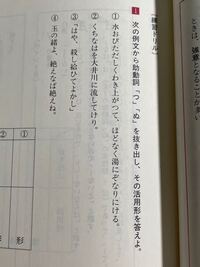 練習ドリル
1 次の例文から助動詞「つ」「ぬ」を抜き出し、その活用形を答えよ。
① 水おびたたしくわき上がつて、ほどなく湯にぞなりにける。
② くちなはを大井川に流してけり。
③ 「はや、殺し給ひてよかし」
④ 玉の緒よ、絶えなば絶えね。
① 形
② 形